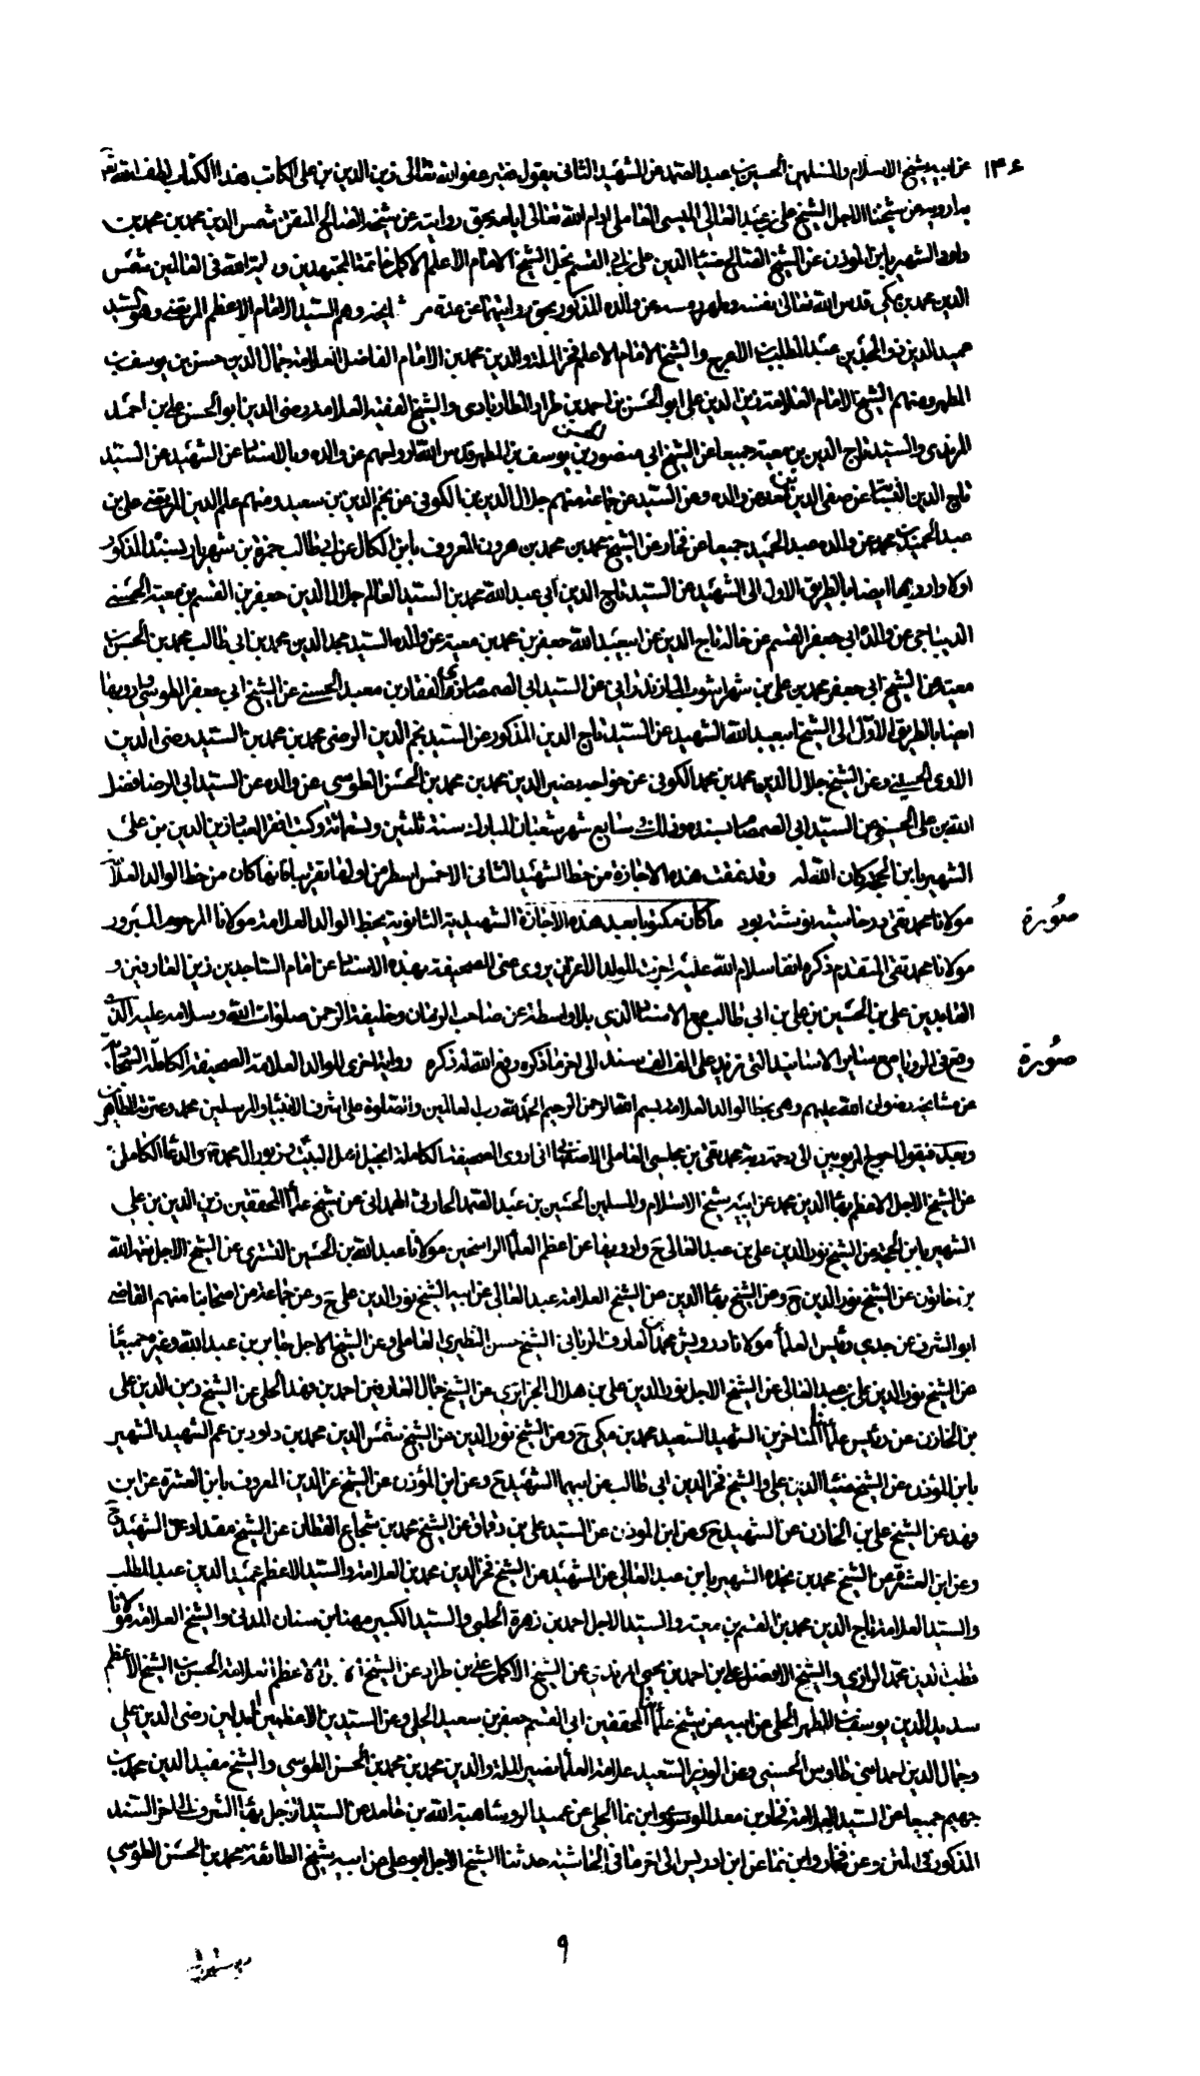 ١٣٤ عن ابيه شيخ الاسلام والمسلمين الحسين بن عبد الصمد عن الشهيد الثاني يقول فقير عفو الله تعالى زين الدين بن علي الكاتب هذا الكتاب
اروي عن شيخنا الاجل الشيخ علي بن عبد العالي الميسي العاملي ادام الله تعالى ايامه بحق روايته عن شيخه الصالح المتقن شمس الدين محمد بن محمد بن
داود الشهير بابن المؤذن عن الشيخ الصالح ضياء الدين علي نجل الشيخ الامام الاعلم الاكمل خاتمة المجتهدين في العالمين شمس
الدين محمد بن مكي قدس الله تعالى نفسه وطهر رمسه عن والده المذكور بحق روايتها عن عدة وهم السيد الامام الاعظم المرتضى
عميد الدين عبد المطلب الاعرج والشيخ الامام الاعلم فخر الملة والدين محمد بن الامام الفاضل العلامة جمال الدين حسن بن يوسف بن
المطهر ومنهم الشيخ الامام العلامة زين الدين علي ابو الحسن بن احمد بن طراد المطارابادي والشيخ الفقيه العلامة رضي الدين ابو الحسن علي بن احمد
المزيدي والسيد تاج الدين بن معية جميعا عن الشيخ ابي منصور الحسن بن يوسف بن المطهر قدس الله ارواحهم عن والده وبالاسناد عن الشهيد عن السيد
تاج الدين عن صفي الدين بن معد عن والده وعن السيد عن جماعة منهم جلال الدين بن الكوفي عن نجم الدين بن سعيد ومنهم علم الدين المرتضى علي بن
عبد الحميد بن محمد عن والده عبد الحميد جميعا عن فخار عن الشيخ محمد بن محمد بن هرون المعروف بابن الكال عن ابي طالب حمزة بن شهريار بسنده المذكور
اولا وارويها ايضا بالطريق الاول الى الشهيد عن السيد تاج الدين ابي عبد الله محمد بن السيد العالم جلال الدين جعفر بن القسم بن معية الحسني
الديباجي عن والده ابي جعفر القسم عن خاله تاج الدين جعفر بن محمد بن معية عن والده السيد مجد الدين محمد بن ابي طالب محمد بن الحسن بن
معية عن الشيخ ابي جعفر محمد بن علي بن شهراشوب المازندراني عن السيد ابي الصمصام ذي الفقار بن معبد الحسني عن الشيخ ابي جعفر الطوسي وارويها
ايضا بالطريق الاول الى الشيخ ابي عبد الله الشهيد عن السيد تاج الدين المذكور عن السيد نجم الدين الرضي محمد بن محمد بن السيد رضي الدين
الاوي الحسيني وعن الشيخ جلال الدين محمد بن محمد الكوفي عن خواجه نصير الدين محمد بن محمد بن الحسن الطوسي عن والده عن السيد ابي الرضا فضل
الله بن علي الحسني عن السيد ابي الصمصام بسنده سابع شهر شعبان المبارك سنة ثلثين وتسعمائة وكتب افقر العباد زين الدين بن علي
الشهير بابن الحجة كان الله له وقد نقلت هذه الاجازة من خط الشهيد الثاني الا خمس اسطر من اولها تقريبا فانها كان من خط الوالد
صورة مولانا محمد تقي در حاشيه نوشته بود ما كان مكتوبا بعيد هذه الاجازة الشهيدية الثانوية بخط الوالد العلامة مولانا المرحوم المبرور
مولانا محمد تقي المتقدم ذكره انفا سلام الله عليه اجزت للولد الاعز ان يروي عني الصحيفة بهذه الاسناد عن امام الساجدين زين العارفين و
العابدين علي بن الحسين بن علي بن ابي طالب مع الاسناد الذي بلا واسطة عن صاحب الزمان وخليفة الرحمن صلوات الله وسلامه عليه
صورة في الرؤيا مع سائر الاسانيد التي تزيد على الف الف سند الى اخر ما ذكره رفع الله قدره رواية اخرى للوالد العلامة الصحيفة الكاملة
عن مشايخه رضوان الله عليهم وهي بخط الوالد العلامة بسم الله الرحمن الرحيم الحمد لله رب العالمين والصلوة على اشرف الانبياء والمرسلين محمد وعترته الطاهرين
وبعد فيقول احوج المربوبين الى رحمة ربه محمد تقي بن مجلسي العاملي الاصفهاني اني اروي الصحيفة الكاملة انجيل اهل البيت وزبور ال محمد والدعاء الكامل
عن الشيخ الاجل الاعظم بهاء الدين محمد عن ابيه شيخ الاسلام والمسلمين الحسين بن عبد الصمد الحارثي الهمداني عن شيخ علماء المحققين زين الدين بن علي
الشهير بابن الحجة عن الشيخ نور الدين علي بن عبد العالي ح وارويها عن اعظم العلماء الراسخين مولانا عبد الله بن الحسين التستري عن الشيخ الاجل نعمة الله
بن خاتون عن الشيخ نور الدين ح وعن الشيخ بهاء الدين عن الشيخ العلامة عبد العالي عن ابيه الشيخ نور الدين علي ح وعن جماعة من اصحابنا منهم القاضي
ابو الشرف عن جدي رئيس العلماء مولانا درويش محمد بن العارف الرباني الشيخ حسن النطنزي العاملي وعن الشيخ الاجل جابر بن عبد الله وغيره جميعا
عن الشيخ نور الدين علي بن عبد العالي عن الشيخ الاجل نور الدين علي بن هلال الجزائري عن الشيخ جمال العارفين احمد بن فهد الحلي عن الشيخ زين الدين علي
بن الخازن عن رئيس علمائنا المتاخرين الشهيد السعيد محمد بن مكي ح وعن الشيخ نور الدين عن الشيخ شمس الدين محمد بن داود بن عم الشهيد الشهير
بابن المؤذن عن الشيخ ضياء الدين علي والشيخ فخر الدين ابي طالب عن ابيهما الشهيد ح وعن ابن المؤذن عن الشيخ عز الدين المعروف بابن العشرة عن ابن
فهد عن الشيخ علي بن الخازن عن الشهيد ح وعن ابن المؤذن عن السيد علي بن دقماق عن الشيخ محمد بن شجاع القطان عن الشيخ مقداد عن الشهيد ح
وعن ابن العشرة عن الشيخ محمد بن نجدة الشهير بابن عبد العالي عن الشهيد عن الشيخ فخر الدين محمد بن العلامة والسيد الاعظم عميد الدين عبد المطلب
والسيد العلامة تاج الدين محمد بن القسم بن معية والسيد الاجل احمد بن زهرة الحلبي والسيد الكبير مهنا بن سنان المدني والشيخ العلامة مولانا
قطب الدين محمد الرازي والشيخ الافضل علي بن احمد بن يحيى المزيدي عن الشيخ الاكمل علي بن طراد عن الشيخ العلامة الحسن بن الشيخ الاعظم
سديد الدين يوسف بن المطهر الحلي عن ابيه عن شيخ علمائنا المحققين ابي القسم جعفر بن سعيد الحلي وعن السيدين الاعظمين رضي الدين علي
وجمال الدين احمد ابني طاوس الحسني وعن الوزير السعيد علامة العلماء نصير الملة والدين محمد بن محمد بن الحسن الطوسي والشيخ مفيد الدين محمد بن
جهيم جميعا عن السيد العلامة فخار بن معد الموسوي وابن نما الحلي عن عميد الرؤساء هبة الله بن حامد عن السيد الاجل بهاء الشرف الى اخر السند
المذكور في المتن وعن فخار وابن نما عن ابن ادريس الى اخر ما في الحاشية حدثنا الشيخ الاجل ابو علي عن ابيه شيخ الطائفة محمد بن الحسن الطوسي
٩